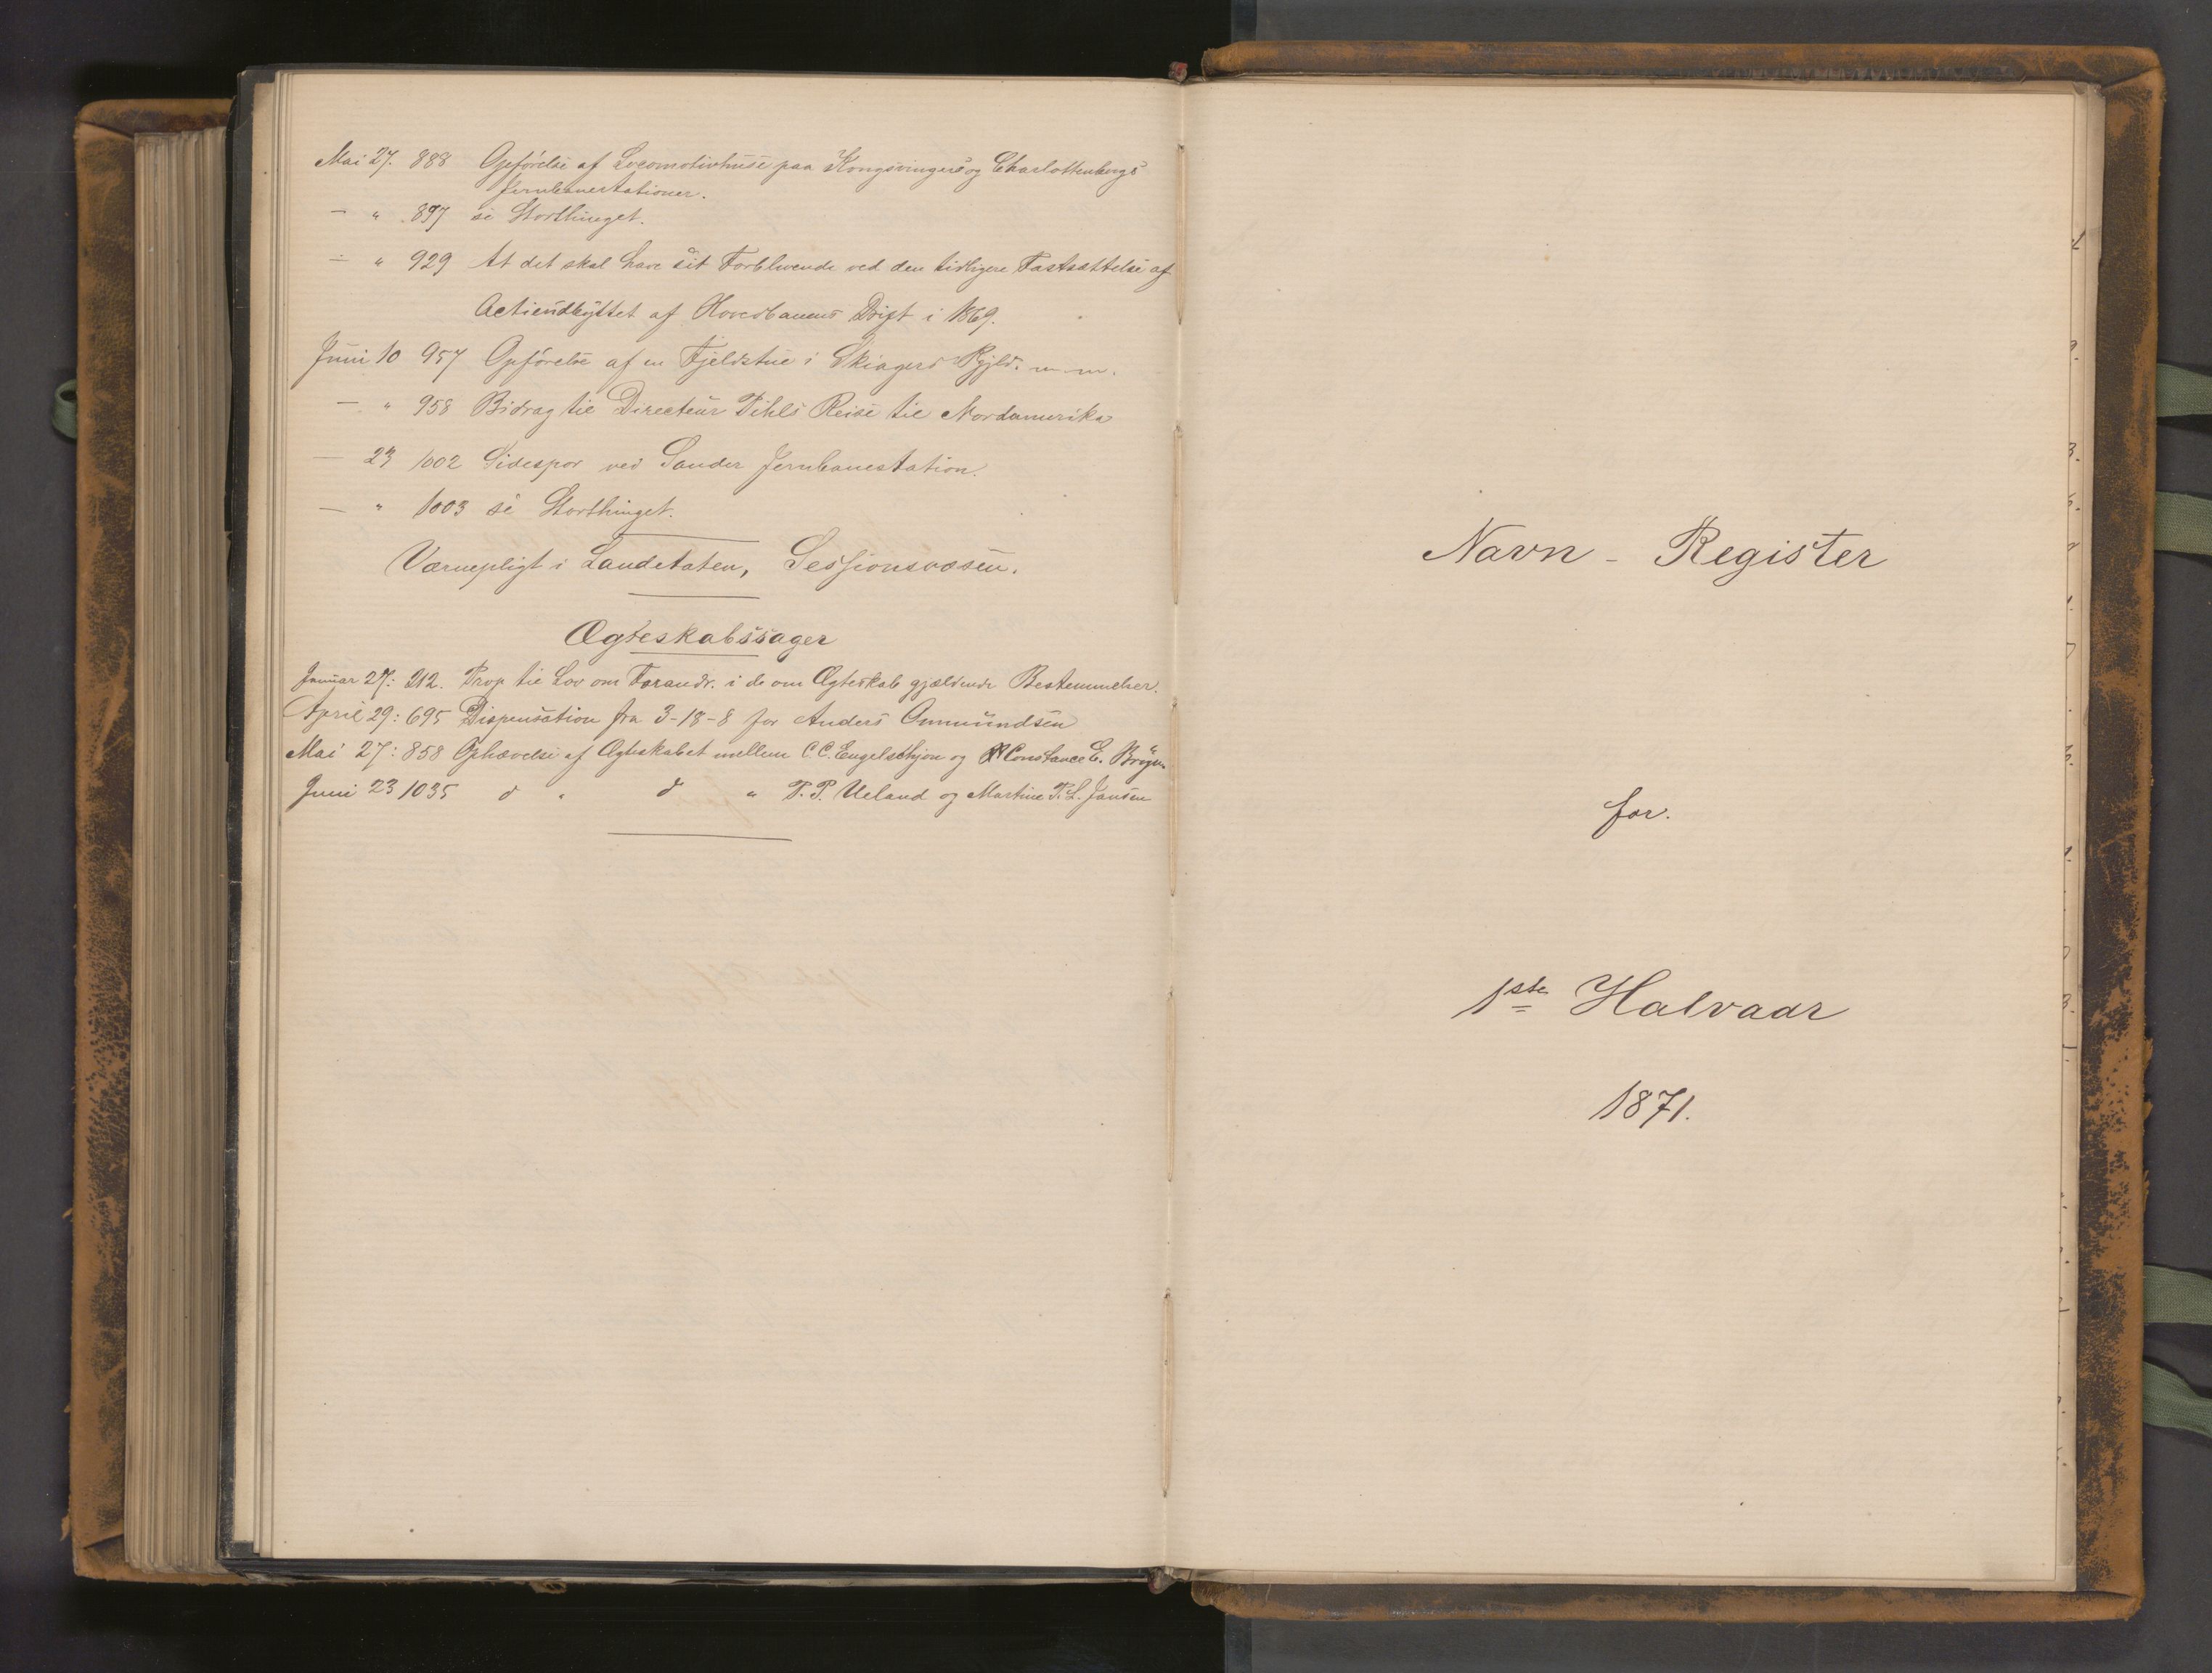 Mai 27. 888 Opførelse af Locomotivhuse paa Kongsvingers og Charlottenbergs
Jernbanestationer.
— " 897 se Storthinget.
— " 929 At det skal have sit Forblivende ved den tidligere Fastsættelse af
Actieudbyttet af Hovedbanens Drift i 1869.
Juni 10 957 Opførelse af en Fjeldstue i Skiagers m. m.
— " 958 Bidrag til Directeur Pihls Reise til Nordamerika
— 23 1002 Sidespor ved Sander Jernbanestation.
— " 1003 se Storthinget.
Værnepligt i Landetaten, Sessionsvæsen.
Ægteskabssager
Januar 27: 212. Prop til Lov om Forandr. i de om Ægteskab gjældende Bestemmelser.
April 29: 695 Dispensation fra 3-18-8 for Anders Ommundsen
Mai 27: 858 Ophævelse af Ægteskabet mellem C. C. Engelschjøn og Constance E.
Juni 23 1035 d " d " T. P. Ueland og Martine T. L. Jansen
Navn - Register
for.
1ste Halvaar
1871.